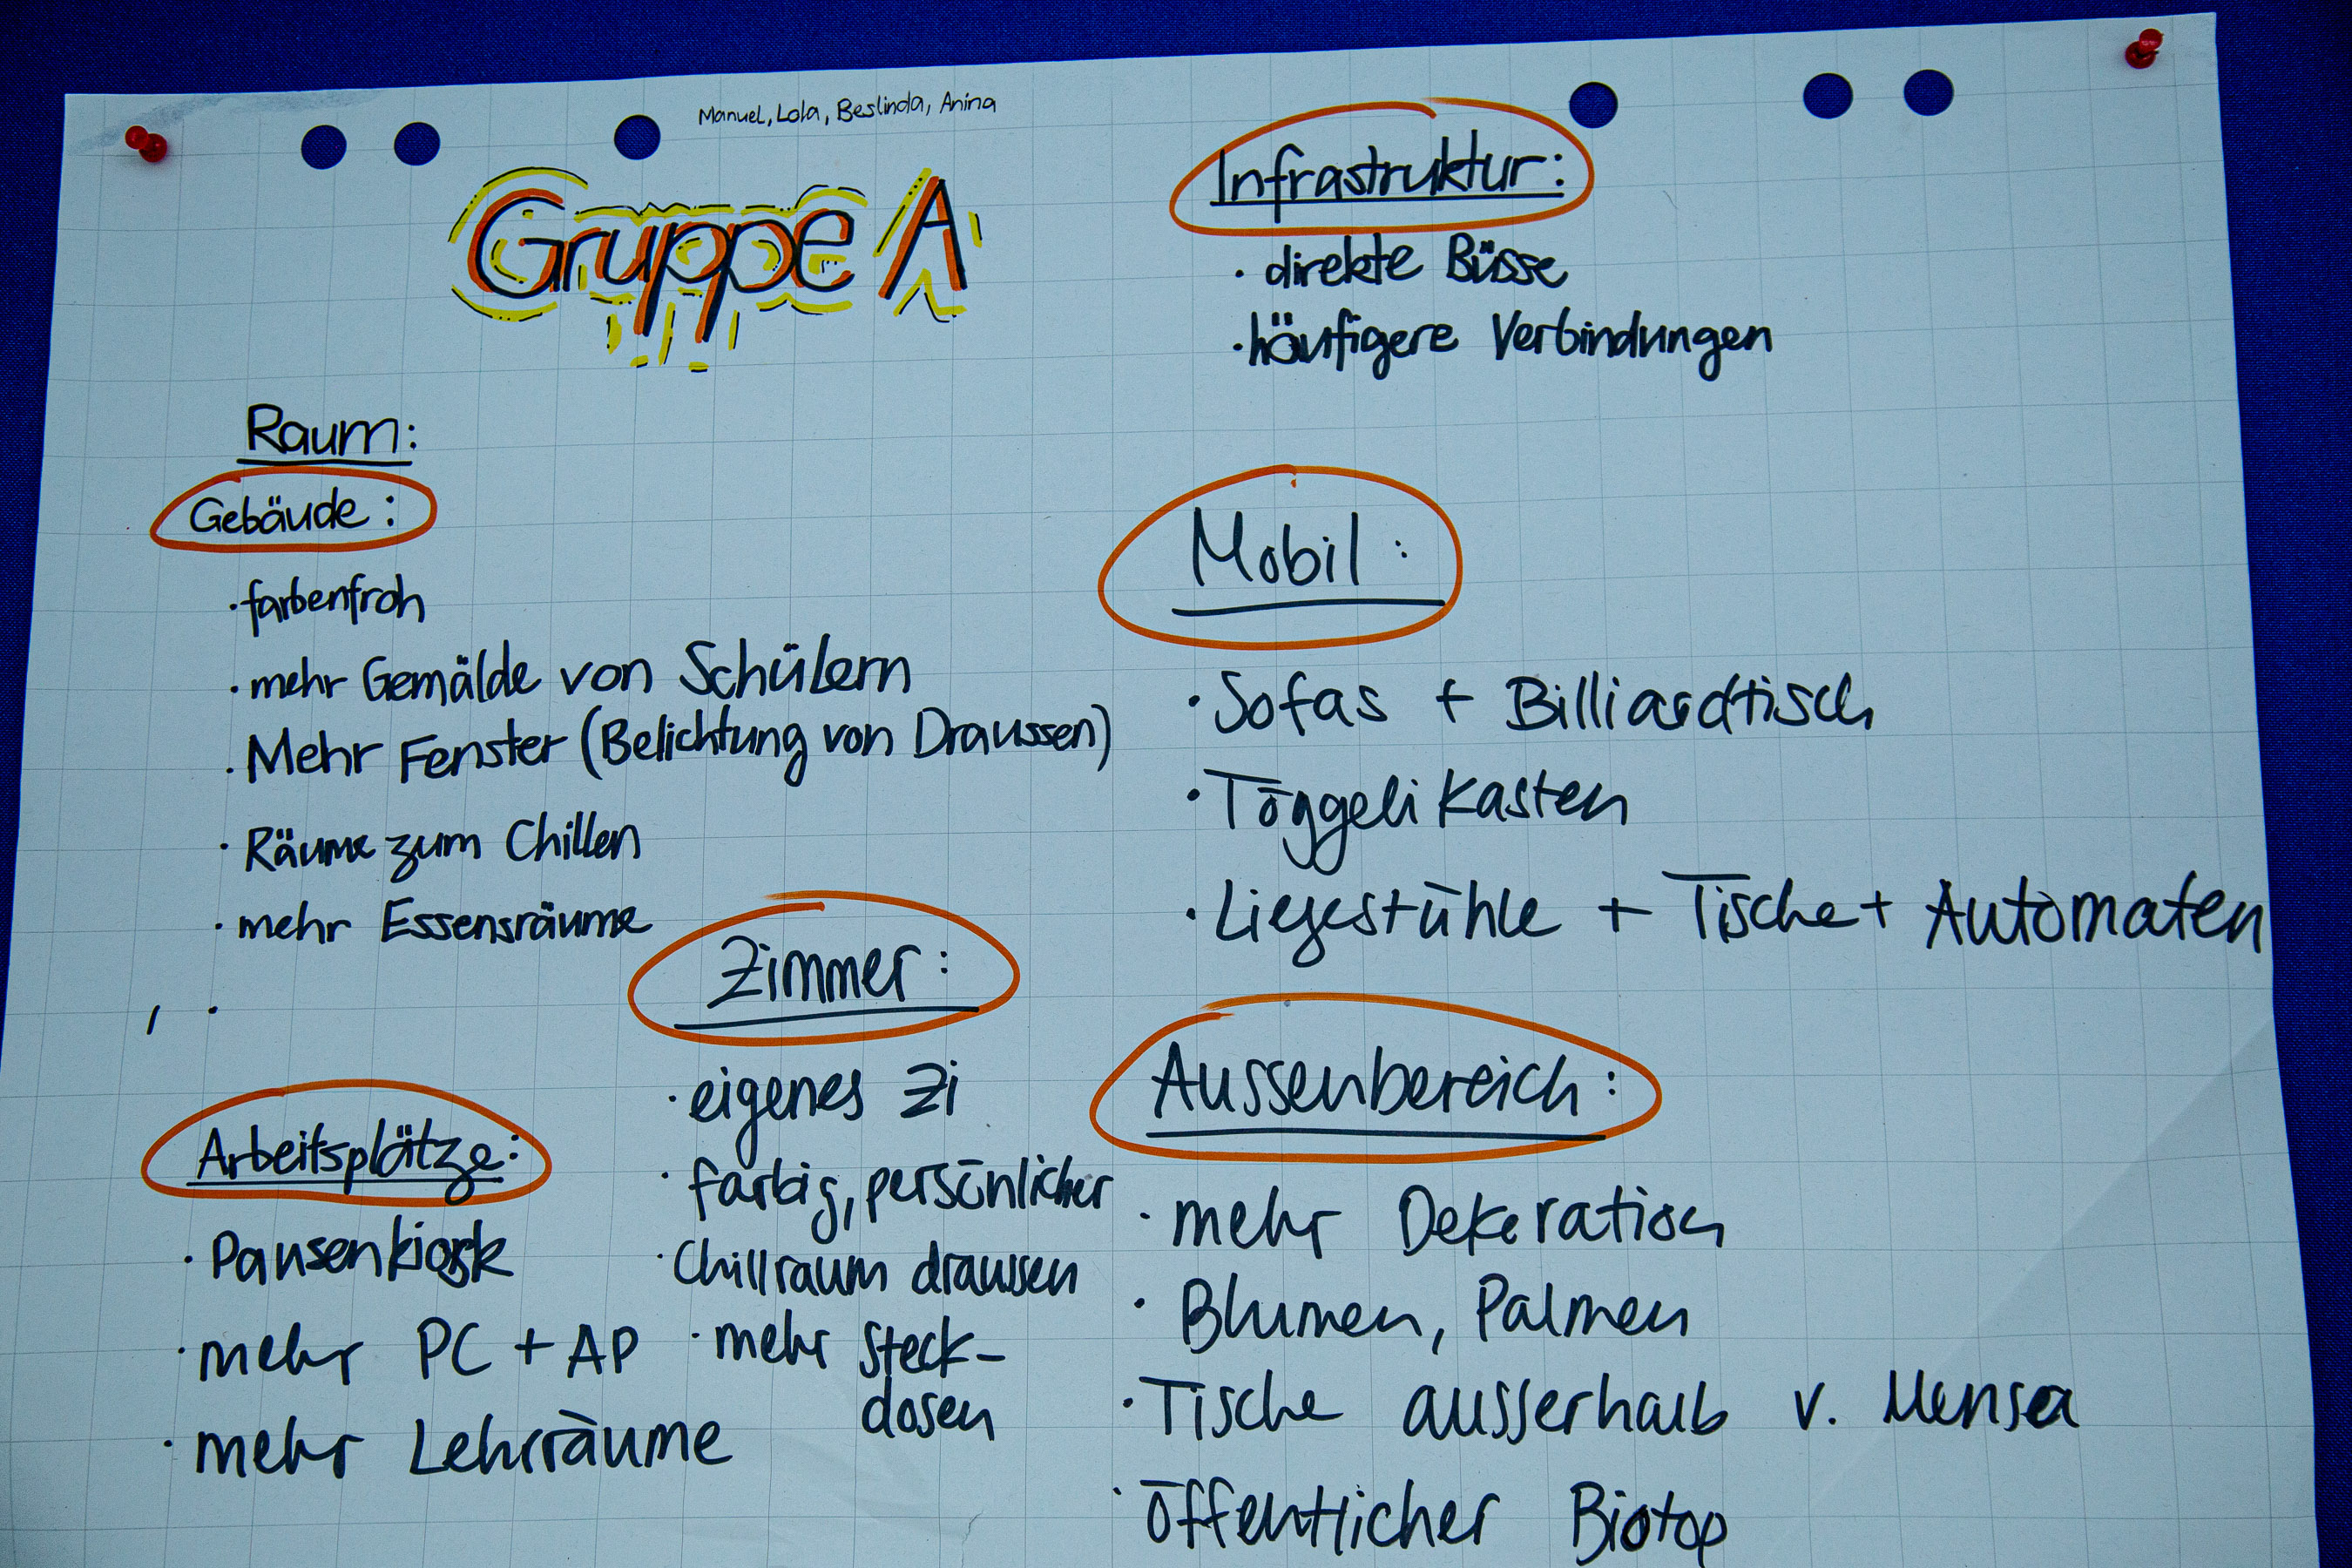 Manuel, Lola, Beslinda, Anina
Gruppe A
Raum:
Gebäude:
· farbenfroh
· mehr Gemälde von Schülern
· Mehr Fenster (Belichtung von Draussen)
· Räume zum Chillen
· mehr Essensräume
·
Arbeitsplätze:
· Pausenkiosk
· mehr PC + AP
· mehr Lehrräume
Zimmer:
· eigenes Zi
· farbig, persönlicher
· Chillraum draussen
· mehr Steck-
dosen
Infrastruktur:
· direkte Büsse
· häufigere Verbindungen
Mobil:
· Sofas + Billiardtisch
· Töggelikasten
· Liegestühle + Tische + Automaten
Aussenbereich:
· mehr Dekoration
· Blumen, Palmen
· Tische ausserhalb v. Mensa
· öffentlicher Biotop